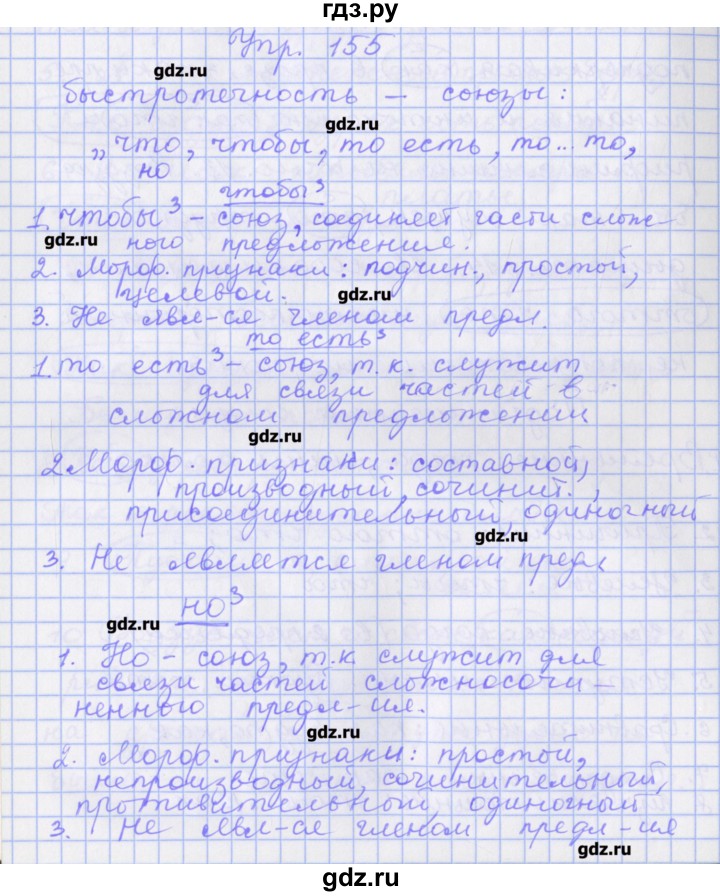 гдз.ру
Упр. 155
gdz.ru
быстротечность – союзы:
gdz.ru
„что, чтобы, то есть, то... то,
но
gdz.ru
чтобы³
1. чтобы³ – союз, соединяет части слож–
gdz.ru ного предложения.
2. Мороф. признаки: подчин., простой,
целевой. gdz.ru
3. Не явл-ся членом предл.
то есть³
1. то есть³ – союз, т.к. служит
для связи частей в
сложном предложении
gdz.ru
2. Мороф. признаки: составной,
производный, сочинит.,
присоединительный, одиночный
gdz.ru
3. Не является членом предл.
но³
gdz.ru
1. Но – союз, т.к. служит для
связи частей сложносочи–
ненного предл-ия.
gdz.ru
2. Мороф. признаки: простой,
непроизводный, сочинительный,
противительный, одиночный
3. Не явл-ся членом предл-ия
gdz.ru
гдз.ру